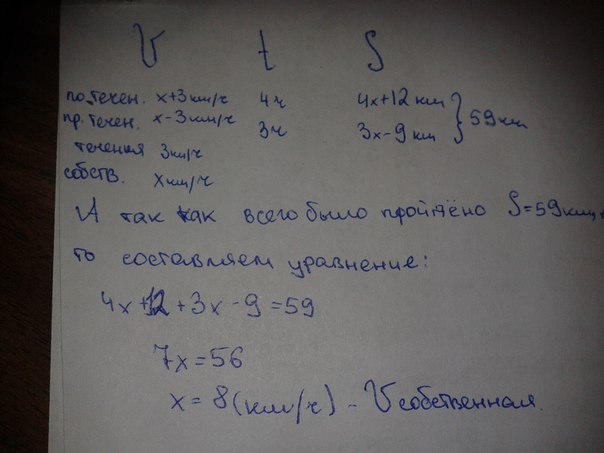 V t S
по течен. x+3км/ч 4ч 4x+12км
пр. течен. x-3км/ч 3ч 3x-9км } 59км
течения 3км/ч
собств. xкм/ч
А так как всего было пройдено S=59км,
то составляем уравнение:
4x+12+3x-9=59
7x=56
x=8(км/ч) - V собственная.